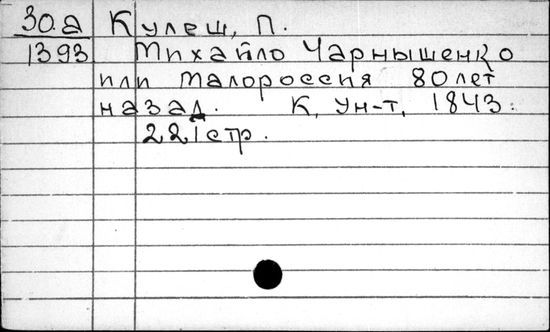 30.а Кулеш, П.
1393 Михайло Чарнышенко
или Малороссия 80 лет
назад. К, Ун-т, 1843.
221 стр.